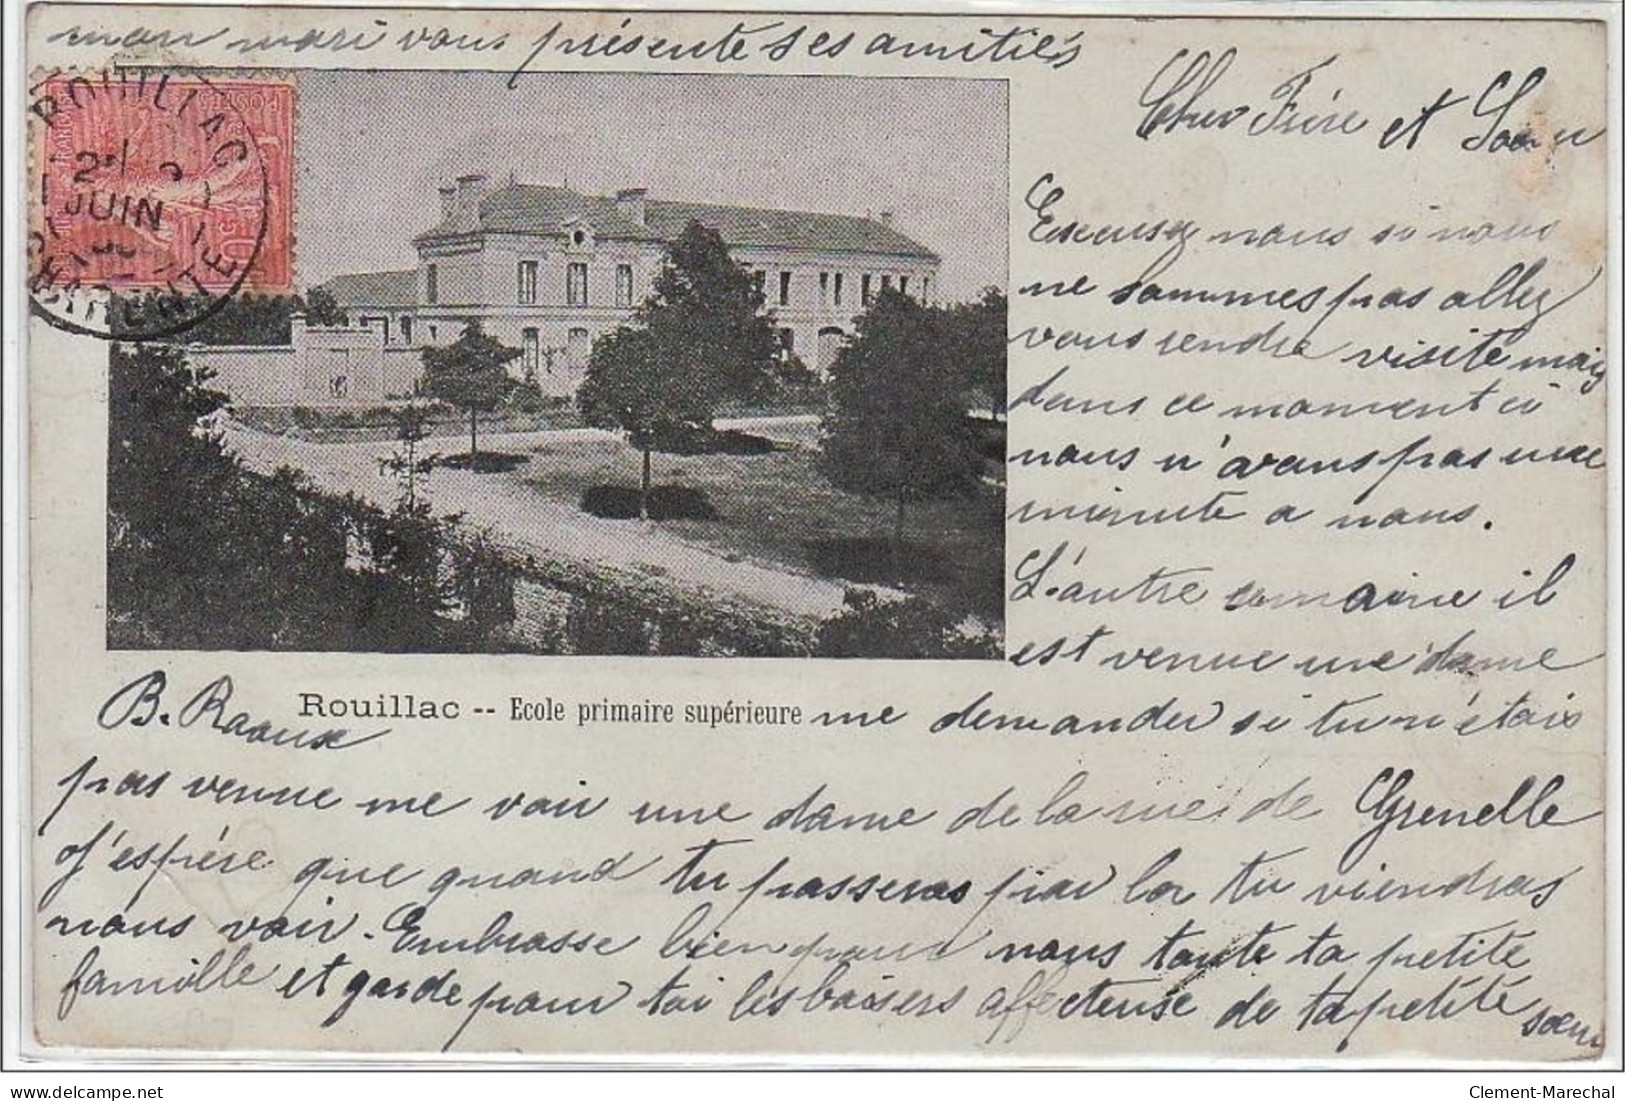 mon mari vous présente ses amitiés
ROUILLAC
JUIN
CHARENTE
POSTES
Cher Frère et Soeur
Excusez nous si nous
ne sommes pas allez
vous rendre visite mais
dans ce moment ci
nous n'avons pas une
minute a nous.
L'autre semaine il
est venue une dame
B. Raoux
Rouillac -- Ecole primaire supérieure
me demander si tu n'étais
pas venue me voir une dame de la rue de Grenelle
J'espére que quand tu passeras par la tu viendras
nous voir. Embrasse bien pour nous toute ta petite
famille et garde pour toi les baisers affecteuse de ta petite soeur
delcampe.net
Clement-Marechal